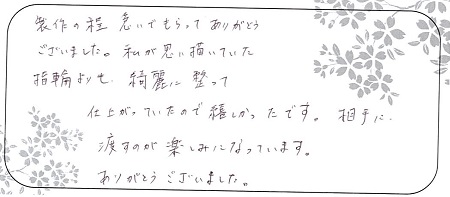 製作の程 急いでもらって ありがとう
ございました。私が思い描いていた
指輪よりも、綺麗に 整って
仕上がっていたので嬉しかったです。 相手に、
渡すのが 楽しみになっています。
ありがとうございました。